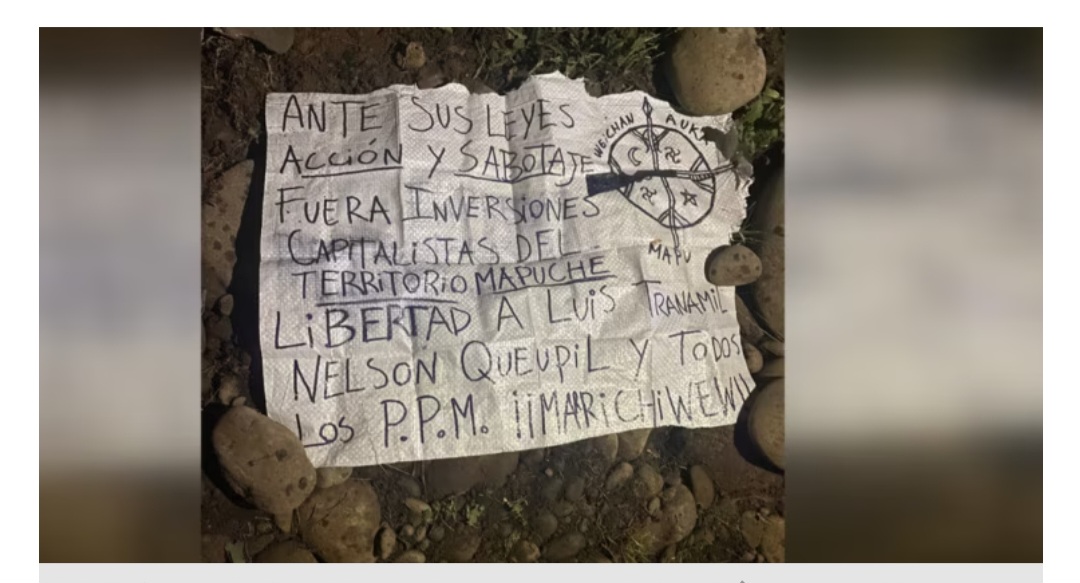 ANTE SUS LEYES
ACCIÓN Y SABOTAJE
FUERA INVERSIONES
CAPITALISTAS DEL
TERRITORIO MAPUCHE
LIBERTAD A LUIS TRANAMIL
NELSON QUEUPIL Y TODOS
LOS P.P.M. ¡¡MARRICHIWEW!!
WEICHAN AUKA
MAPU